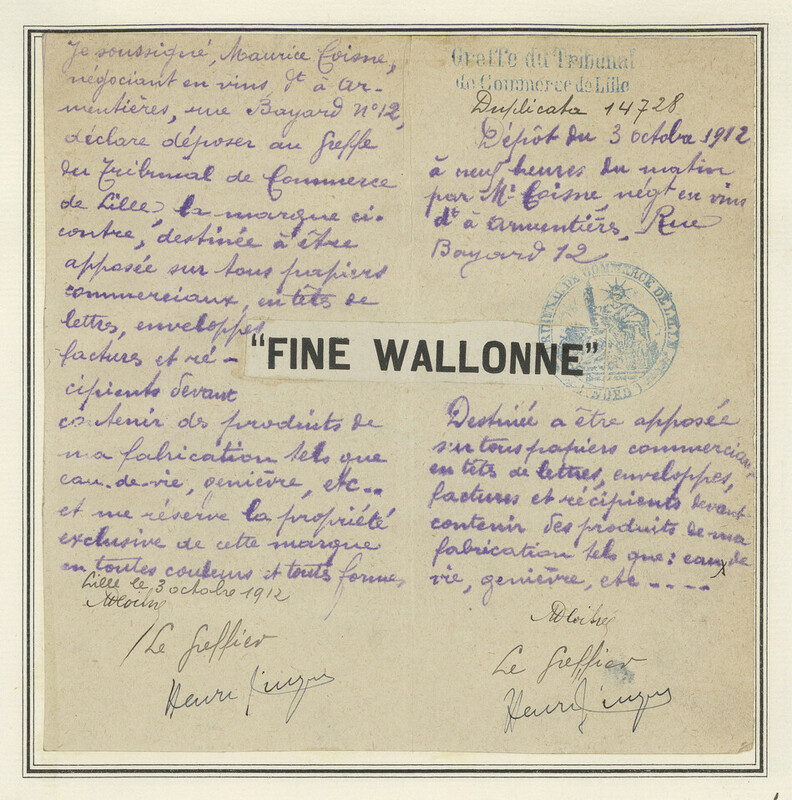 Je soussigné, Maurice Coisne,
négociant en vins, dt à Ar-
mentières, rue Bayard N° 12,
déclare déposer au Greffe
du Tribunal de Commerce
de Lille, la marque ci-
contre, destinée à être
apposée sur tous papiers
commerciaux, en têts de
lettres, enveloppes
factures et ré-
cipients devant
contenir des produits de
ma fabrication tels que
eau-de-vie, genièvre, etc...
et me réserve la propriété
exclusive de cette marque
en toutes couleurs et toute formes
Lille le 3 octobre 1912
Le Greffier
Henri
Greffe du Tribunal
de Commerce de Lille
Duplicata 14728
Dépôt du 3 octobre 1912
à neuf heures du matin
par Mr Coisne, négt en vins
dt à Armentières, Rue
Bayard 12
TRIBUNAL DE COMMERCE DE LILLE
(NORD)
"FINE WALLONNE"
Destinée a être apposée
sur tous papiers commerciaux
en têts de lettres, enveloppes,
factures et récipients devant
contenir des produits de ma
fabrication tels que: eau de
vie, genièvre, etc .....
Le Greffier
Henri